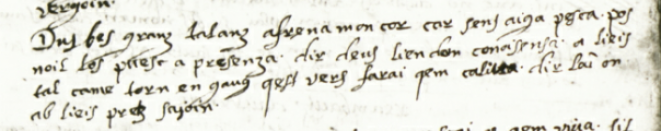 vergoin.
Dus bes granz talanz afrena mon cor car sens aiga pesca. pos
noil les puesc a presenza. dir deus lien don conaisensa. a lieis
tal came torn en gaug qest vers farai qem calitta. dir lai on
ab lieis prez sajoin.